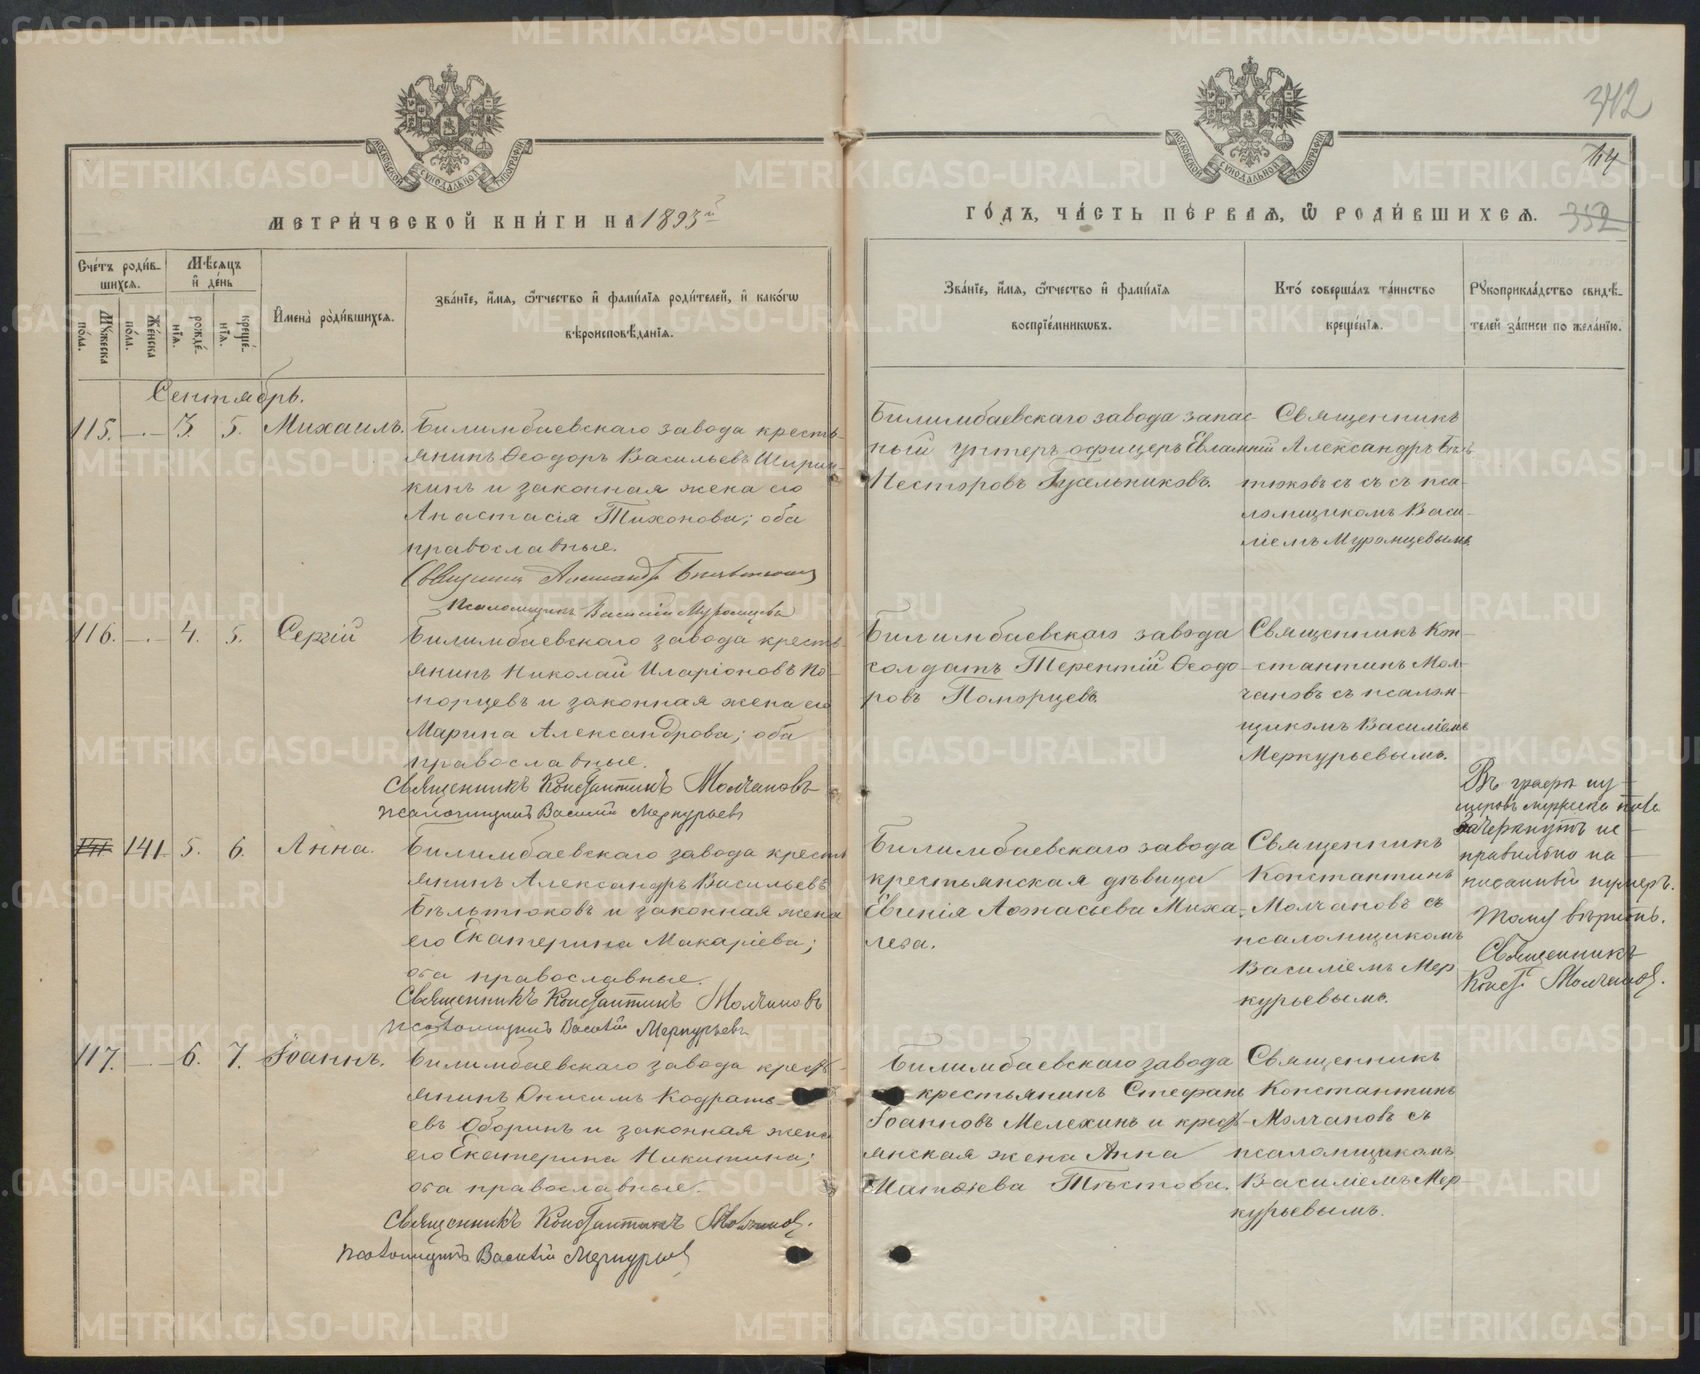 342
114
МЕТРИ́ЧЕСКОЙ КНИ́ГИ НА 1893й
ГО́ДЪ, ЧА́СТЬ ПЕ́РВАѦ, Ѽ РОДИ́ВШИХСѦ.
352
Сче́тъ роди́в-
шихсѧ.
Му́жеска
по́ла.
Же́нска
по́ла.
Мѣ́сѧцъ
и҆ де́нь
рожде́-
нїѧ.
креще́-
нїѧ.
И҆мена̀ роди́вшихсѧ.
Зва́нїе, и҆́мѧ, ѻ҆́тчество и҆ фами́лїѧ роди́телей, и҆ како́гѡ
вѣроисповѣ́данїѧ.
Зва́нїе, и҆́мѧ, ѻ҆́тчество и҆ фами́лїѧ
воспрїе́мникѡвъ.
Кто̀ соверша́лъ та́инство
креще́нїѧ.
Рꙋкоприкла́дство свидѣ́-
телей за́писи по жела́нїю.
Сентябрь.
115. —.— 3. 5. Михаилъ.
Билимбаевскаго завода кресть-
янинъ Ѳеодоръ Васильевъ Ширин-
кинъ и законная жена его
Анастасія Тихонова; оба
православные.
Священникъ Александръ Бѣльтюковъ
Псаломщикъ Василій Муромцевъ
Билимбаевскаго завода запас-
ный унтеръ офицеръ Евлампій
Несторовъ Гусельниковъ.
Священникъ
Александръ Бѣль-
тюковъ съ пса-
ломщикомъ Васи-
ліемъ Муромцевымъ.
116. —.— 4. 5. Сергій
Билимбаевскаго завода кресть-
янинъ Николай Иларіоновъ По-
морцевъ и законная жена его
Марина Александрова; оба
православные.
Священникъ Константинъ Молчановъ
Псаломщикъ Василій Меркурьевъ
Билимбаевскаго завода
солдатъ Терентій Ѳеодо-
ровъ Поморцевъ.
Священникъ Кон-
стантинъ Мол-
чановъ съ псалом-
щикомъ Василіемъ
Меркурьевымъ.
141 141. 5. 6. Анна.
Билимбаевскаго завода кресть-
янинъ Александръ Васильевъ
Бѣльтюковъ и законная жена
его Екатерина Макаріева;
оба православные.
Священникъ Константинъ Молчановъ
Псаломщикъ Василій Меркурьевъ
Билимбаевскаго завода
крестьянская дѣвица
Евгенія Аѳанасіева Миха-
лева.
Священникъ
Константинъ
Молчановъ съ
псаломщикомъ
Василіемъ Мер-
курьевымъ.
Въ графѣ ну-
меровъ мужеска пола
зачеркнутъ не-
правильно на-
писанный нумеръ.
Тому вѣримъ.
Священникъ
Конст. Молчановъ.
117. —.— 6. 7. Іоаннъ.
Билимбаевскаго завода кресть-
янинъ Онисимъ Кодрать-
евъ Оборинъ и законная жена
его Екатерина Никитина;
оба православные.
Священникъ Константинъ Молчановъ.
Псаломщикъ Василій Меркурьевъ
Билимбаевскаго завода
крестьянинъ Стефанъ
Іоанновъ Мелехинъ и кресть-
янская жена Анна
Матѳіева Тѣстова.
Священникъ
Константинъ
Молчановъ съ
псаломщикомъ
Василіемъ Мер-
курьевымъ.